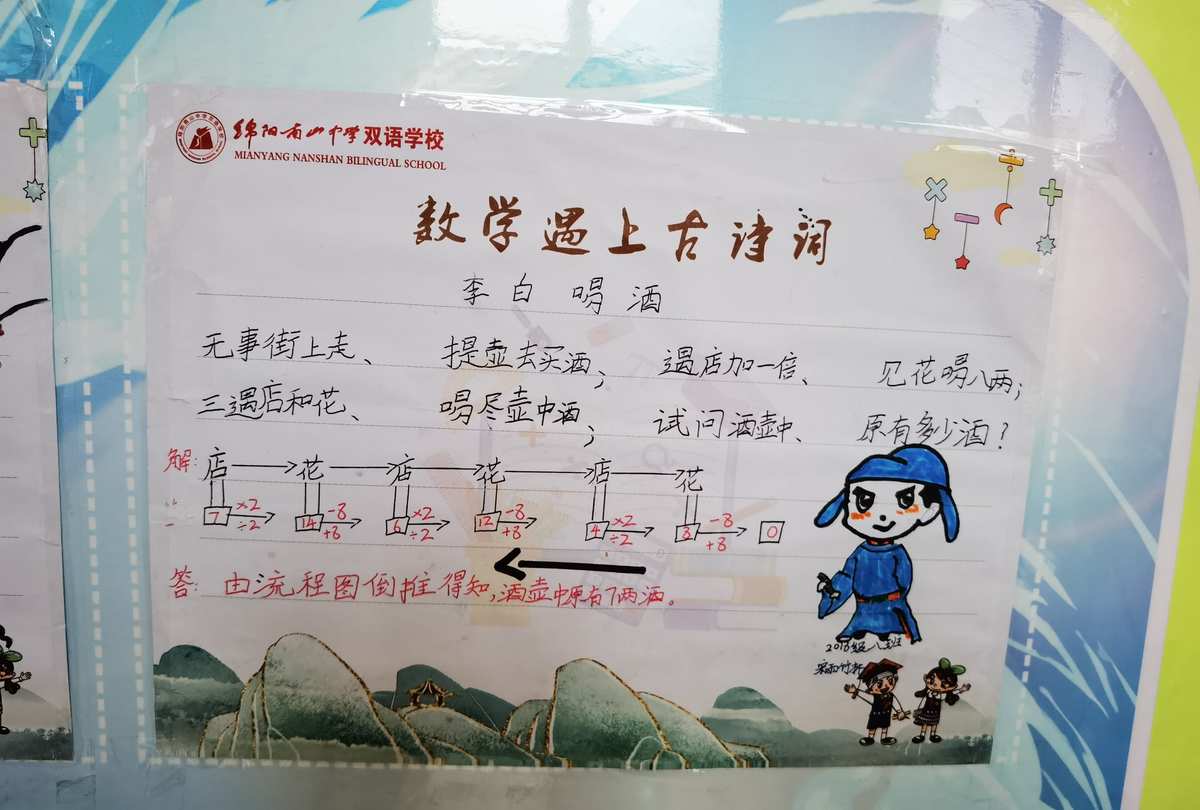 绵阳南山中学双语学校
MIANYANG NANSHAN BILINGUAL SCHOOL
数学遇上古诗词
李白喝酒
无事街上走、 提壶去买酒； 遇店加一倍、 见花喝八两；
三遇店和花、 喝尽壶中酒； 试问酒壶中、 原有多少酒？
解： 店 花 店 花 店 花
7 ×2 ÷2 14 -8 +8 6 ×2 ÷2 12 -8 +8 4 ×2 ÷2 8 -8 +8 0
答： 由流程图倒推得知，酒壶中原有7两酒。
级八班